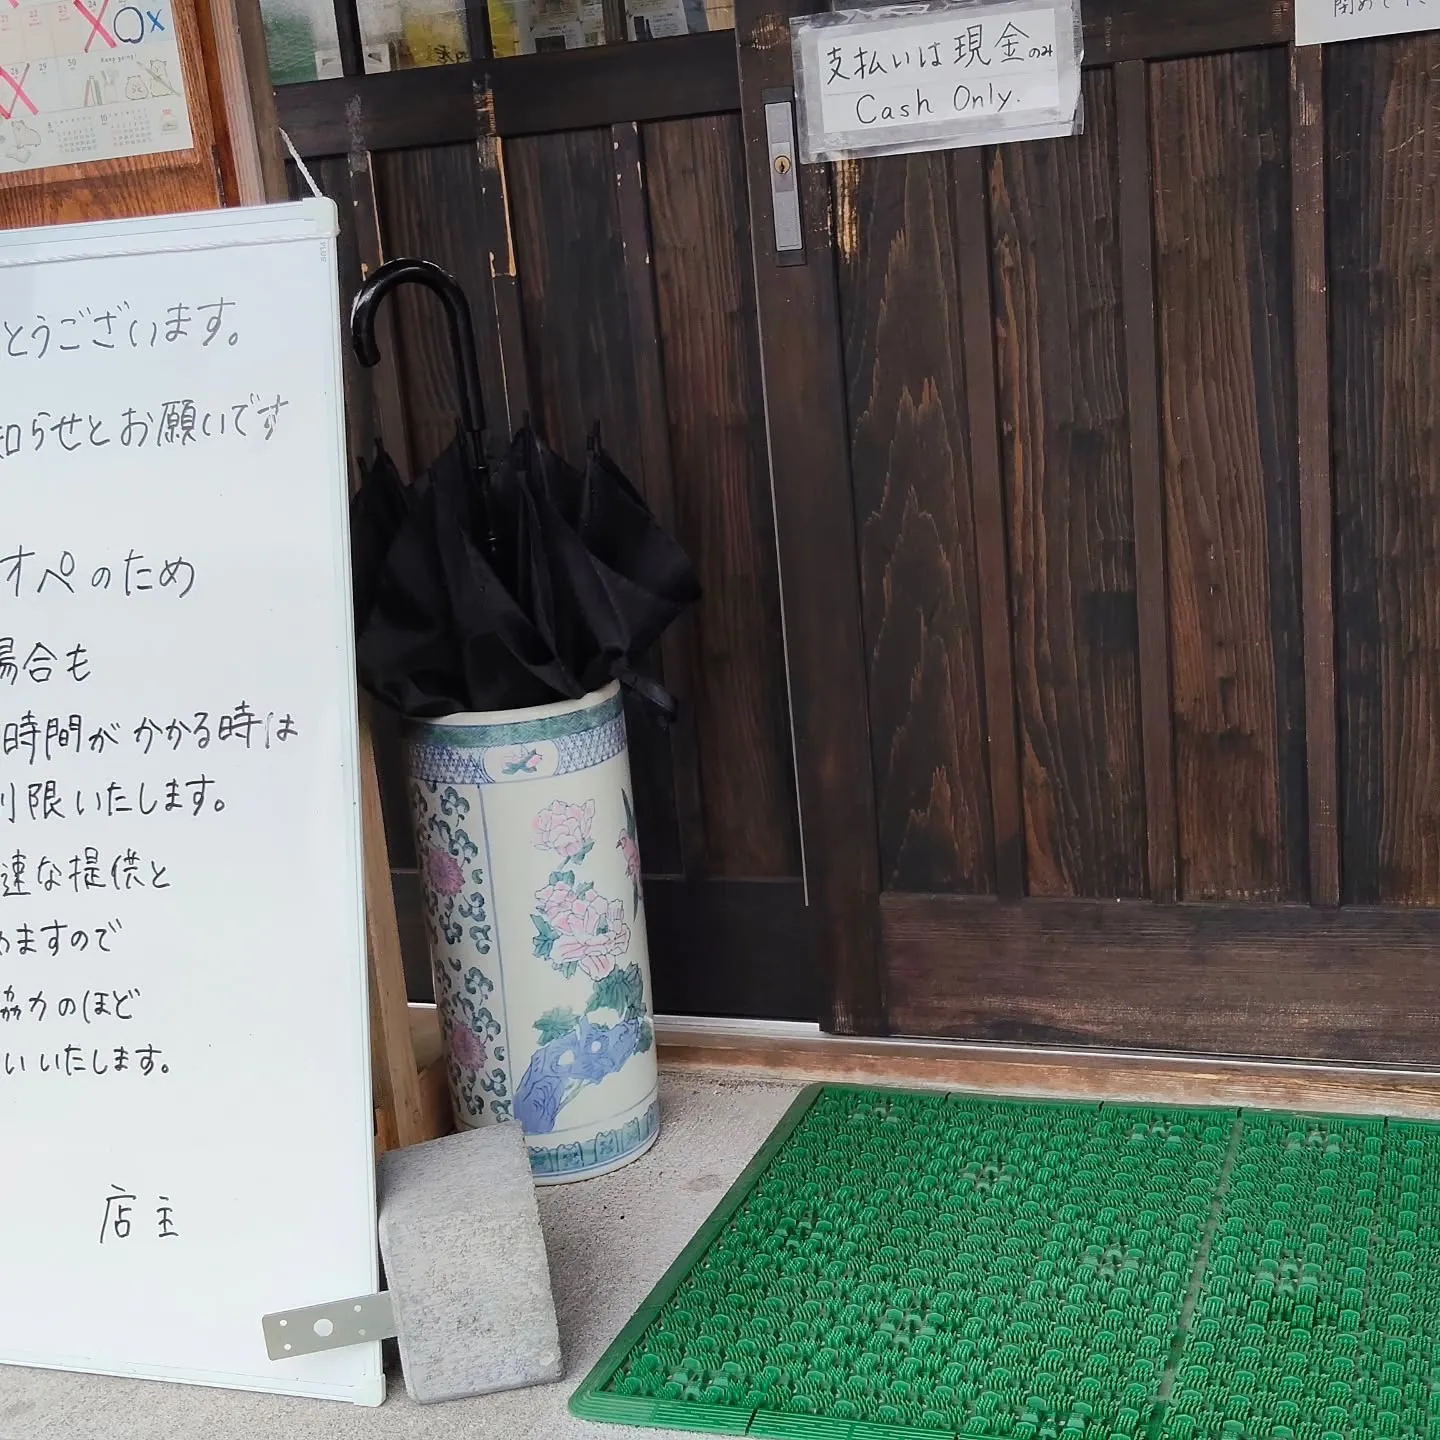 支払いは現金のみ
Cash Only.
PLUS
とうございます。
知らせとお願いです
オペのため
場合も
時間がかかる時は
限いたします。
速な提供と
めますので
協力のほど
いいたします。
店主
Keep going!